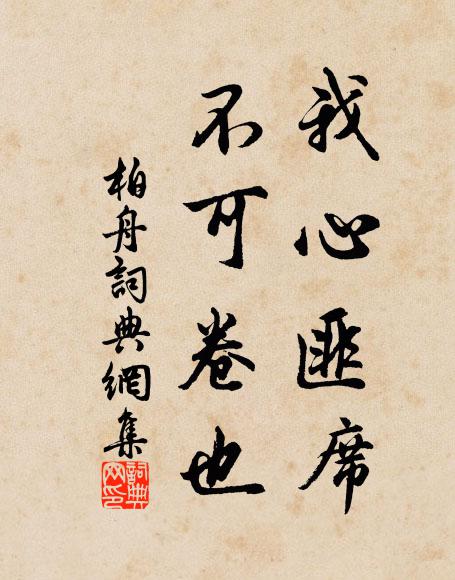 我心匪席
不可卷也
柏舟詞典網集
詞典网印